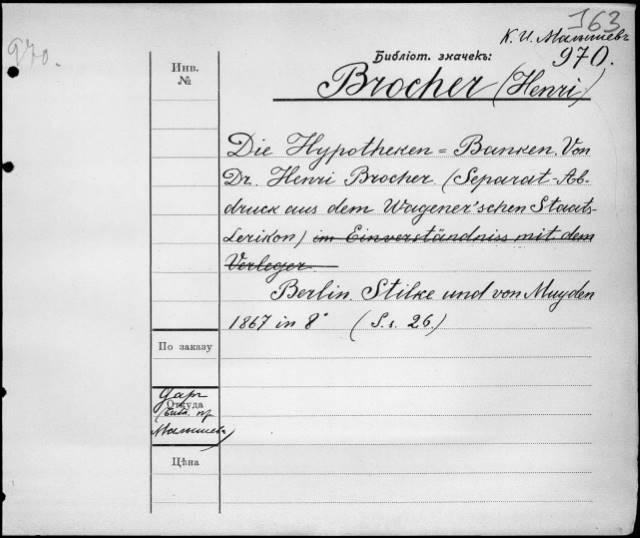 163
К. И. Малышевъ
970.
970.
Библіот. значекъ:
Инв.
№
Brocher (Henri)
Die Hypotheken = Banken. Von
Dr. Henri Brocher. (Separat-Ab-
druck aus dem Wagener'schen Staats-
Lexikon) im Einverständniss mit dem
Verleger.
Berlin. Stilke und von Muyden
1867 in 8° (S.s. 26.)
По заказу
Даръ
Откуда
(Библ. пр
Малышева)
Цѣна